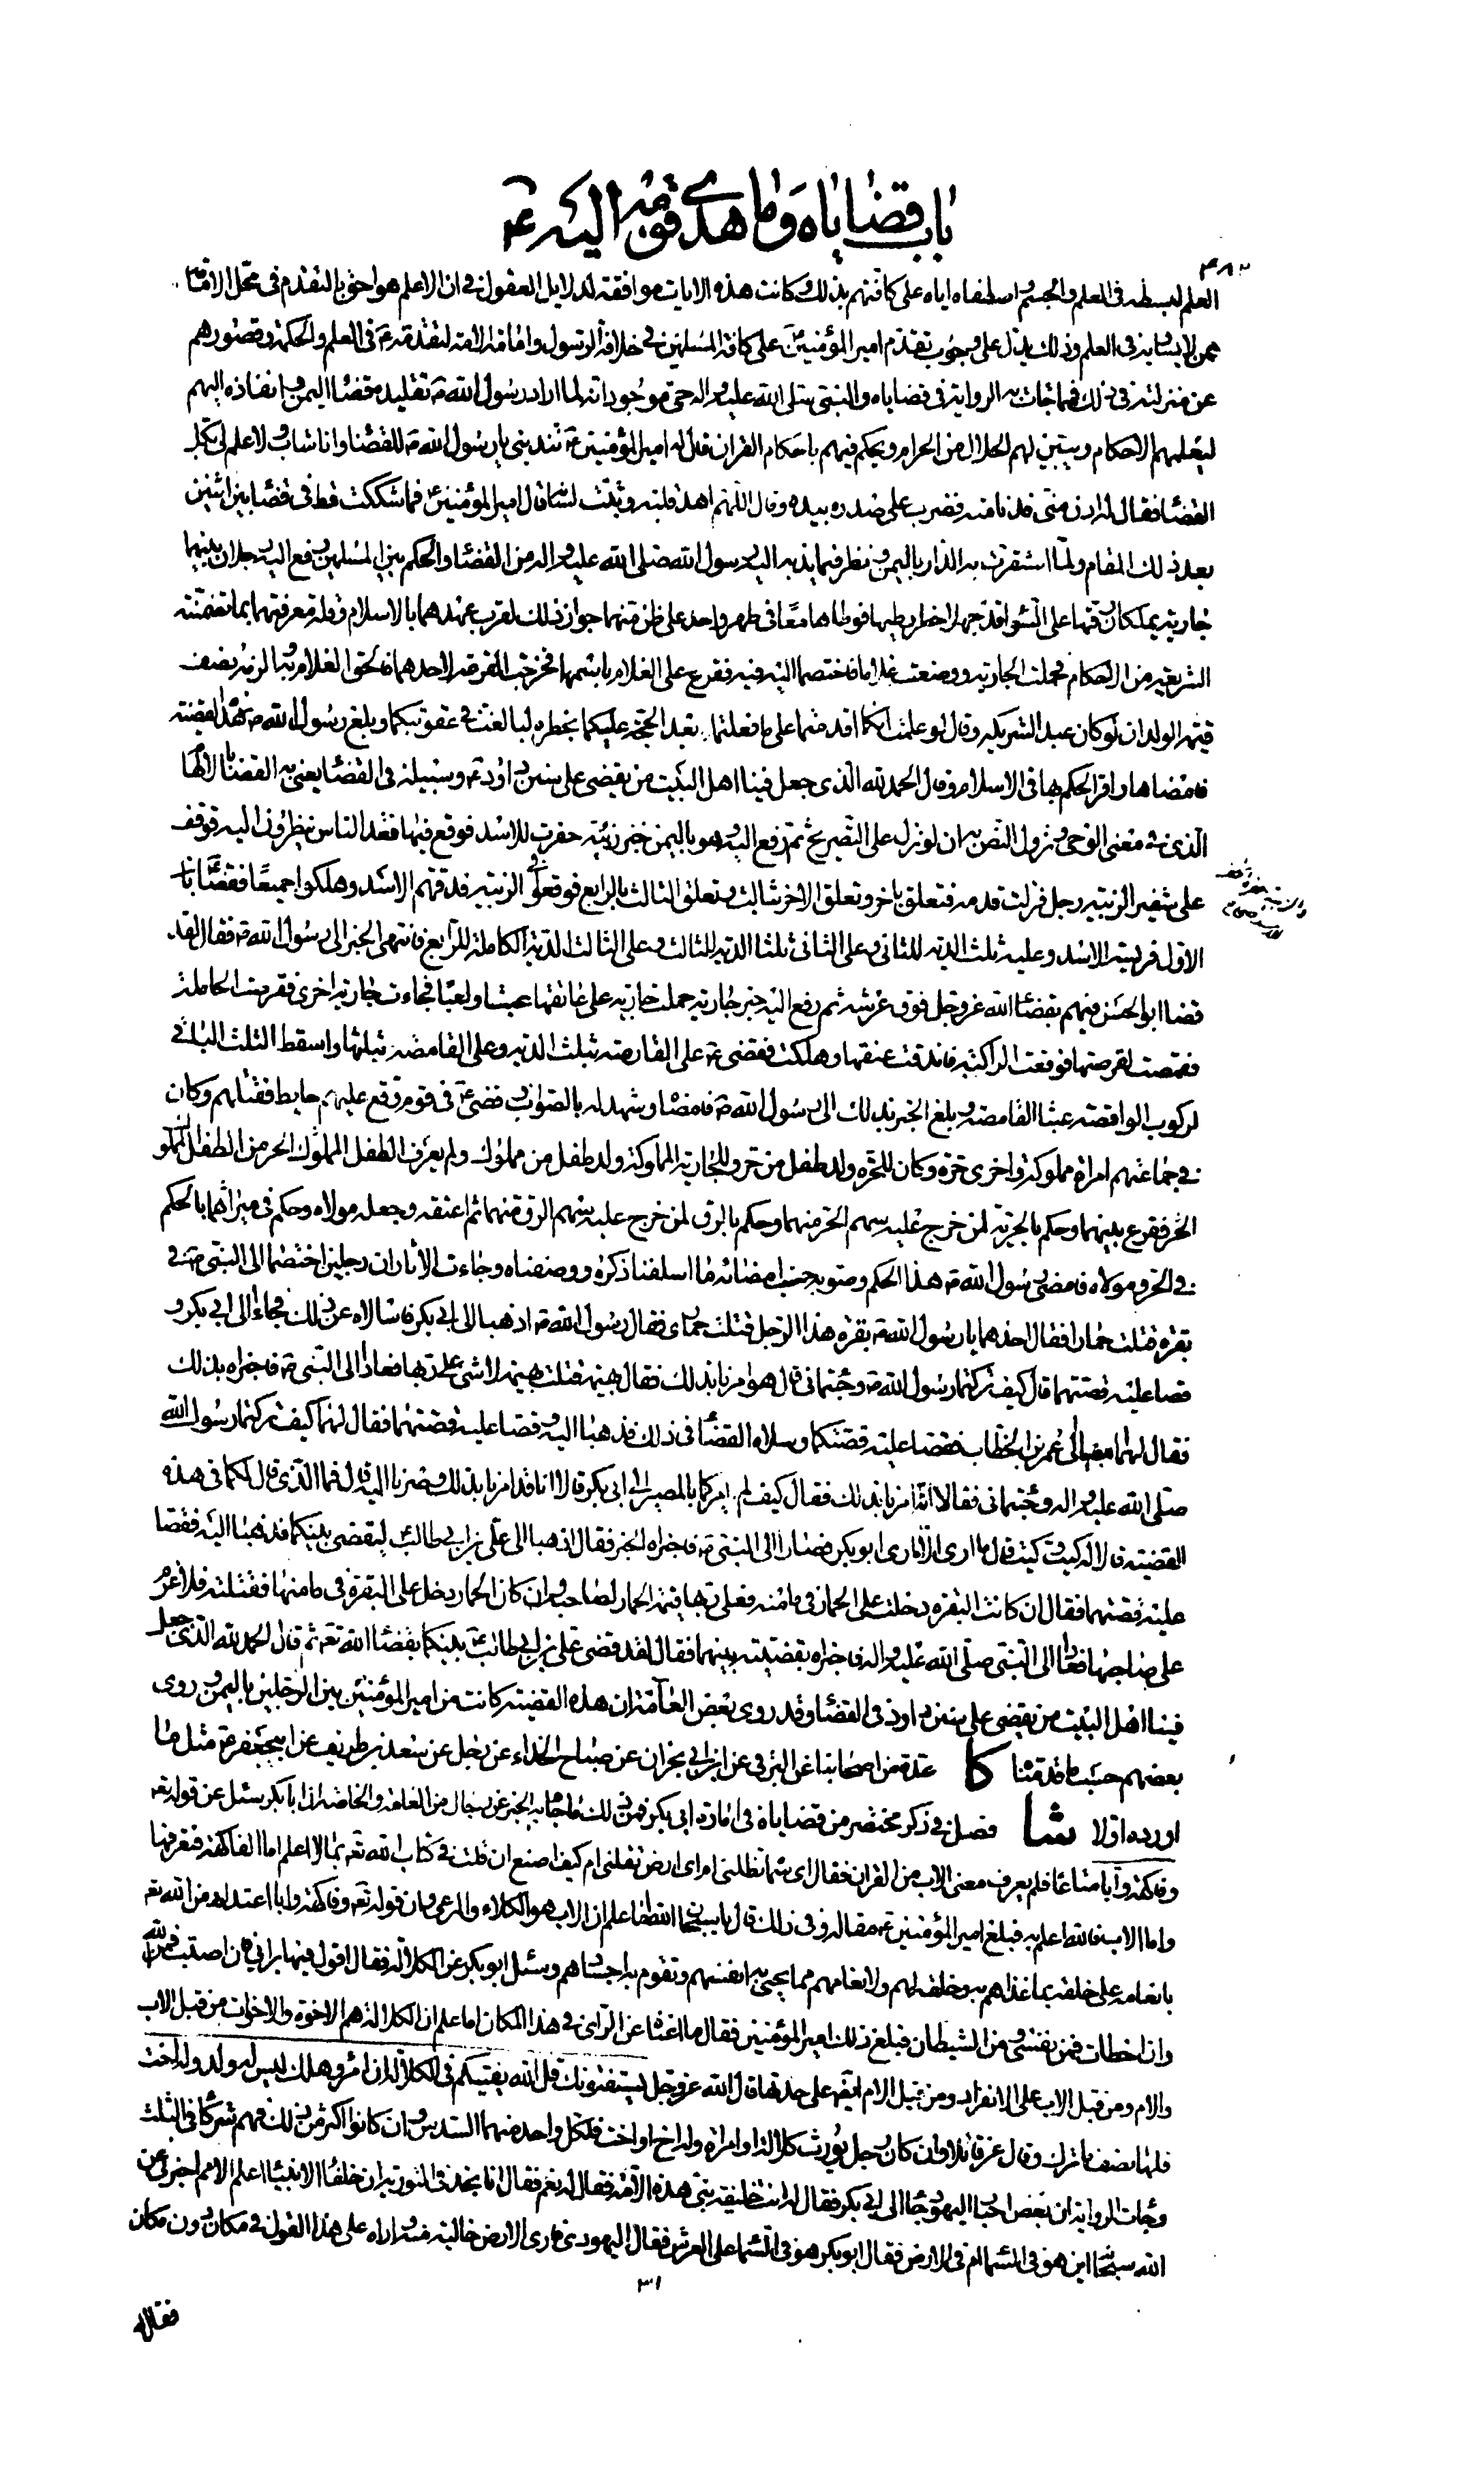 باب قضاياه وما هدى قومه اليه ع
٤٨٢
العلم لبسطه فى العلم والجسم واصطفاه اياه على كافتهم بذلك وكانت هذه الايات موافقة لدلايل العقول فى ان الاعلم هو احق بالتقدم فى محل الامامة
ممن لا يساويه فى العلم وذلك يدل على وجوب تقدم امير المؤمنين ع على كافة المسلمين فى خلافة الرسول وامامة الامة لتقدمه ع فى العلم والحكمة وقصورهم
عن منزلته فى ذلك فمما جاءت به الرواية فى قضاياه والنبى صلى الله عليه واله حى موجود انه لما اراد رسول الله ص تقليده قضا اليمن وانفاذه اليهم
ليعلمهم الاحكام ويبين لهم الحلال من الحرام ويحكم فيهم باحكام القران قال له امير المؤمنين ع تندبنى يا رسول الله ص للقضا وانا شاب ولا علم لى بكل
القضا فقال له ادن منى فدنا منه فضرب على صدره بيده وقال اللهم اهد قلبه وثبت لسانه قال امير المؤمنين ع فما شككت قط فى قضا بين اثنين
بعد ذلك المقام ولما استقرت به الدار باليمن ونظر فيما ندبه اليه رسول الله صلى الله عليه واله من القضا والحكم بين المسلمين رفع اليه رجلان بينهما
جارية يملكان رقها على السوا قد جهلا خطر وطيها فوطاها معا فى طهر واحد على ظن منهما جواز ذلك لقرب عهدهما بالاسلام وقلة معرفتهما بما تضمنته
الشريعة من الاحكام فحملت الجارية ووضعت غلاما فاختصما اليه فيه فقرع على الغلام باسمهما فخرجت القرعة لاحدهما فالحق الغلام به والزمه نصف
قيمة الولد ان لو كان عبدا لشريكه وقال لو علمت انكما اقدمتما على ما فعلتماه بعد الحجة عليكما بخطره لبالغت فى عقوبتكما وبلغ رسول الله ص هذه القضية
فامضاها واقر الحكم بها فى الاسلام وقال الحمد لله الذى جعل فينا اهل البيت من يقضى على سنن داود ع وسبيله فى القضا يعنى به القضا بالالهام
الذى هو معنى الوحى ونزول النص به ان لو نزل على التصريح ثم رفع اليه وهو باليمن خبر زبية حفرت للاسد فوقع فيها فغدا الناس ينظرون اليه فوقف
على شفير الزبية رجل فزلت قدمه فتعلق باخر وتعلق الاخر بثالث وتعلق الثالث بالرابع فوقعوا فى الزبية فدقهم الاسد وهلكوا جميعا فقضى ع بان
الاول فريسة الاسد وعليه ثلث الدية للثانى وعلى الثانى ثلثا الدية للثالث وعلى الثالث الدية الكاملة للرابع فانتهى الخبر الى رسول الله ص فقال لقد
قضا ابو الحسن فيهم بقضا الله عز وجل فوق عرشه ثم رفع اليه خبر جارية حملت جارية على عاتقها عبثا ولعبا فجاءت جارية اخرى فقرصت الحاملة
فقمصت لقرصتها فوقعت الراكبة فاندقت عنقها وهلكت فقضى ع على القارصة بثلث الدية وعلى القامصة بثلثها واسقط الثلث الباقى
لركوب الواقصة عبثا القامصة وبلغ الخبر بذلك الى رسول الله ص فامضاه وشهد له بالصواب وقضى ع فى قوم وقع عليهم حايط فقتلهم وكان
فى جماعتهم امراة مملوكة واخرى حرة وكان للحرة ولد طفل من حر وللجارية المملوكة ولد طفل من مملوك ولم يعرف الطفل المملوك الحر من الطفل المملو
الحر فقرع بينهما وحكم بالحرية لمن خرج عليه سهم الحر منهما وحكم بالرق لمن خرج عليه سهم الرق منهما ثم اعتقه وجعله مولاه وحكم فى ميراثهما بالحكم
فى الحر ومولاه فامضى رسول الله ص هذا الحكم وصوبه حسب امضائه ما اسلفنا ذكره ووصفناه وجاءت الاثار ان رجلين اختصما الى النبى ص فى
بقرة قتلت حمارا فقال احدهما يا رسول الله ص بقرة هذا الرجل قتلت حمارى فقال رسول الله ص اذهبا الى ابى بكر فاسالاه عن ذلك فجاءا الى ابى بكر و
قصا عليه قصتهما قال كيف تركتما رسول الله ص وجئتمانى قال هو امرنا بذلك فقال بهيمة قتلت بهيمة لا شىء على ربها فعادا الى النبى ص فاخبراه بذلك
فقال لهما امضيا الى عمر بن الخطاب فقصا عليه قصتكما وسلاه القضا فى ذلك فذهبا اليه وقصا عليه قصتهما فقال لهما كيف تركتما رسول الله
صلى الله عليه واله وجئتمانى فقالا انه امرنا بذلك فقال كيف لم يامركما بالمصير الى ابى بكر قالا انا قد امرنا بذلك وصرنا اليه قال فما الذى قال لكما فى هذه
القضية قالا له كيت وكيت قال ما ارى الا ما راى ابو بكر فصارا الى النبى ص فاخبراه الخبر فقال اذهبا الى على بن ابى طالب ع ليقضى بينكما فذهبا اليه فقصا
عليه قصتهما فقال ان كانت البقرة دخلت على الحمار فى مامنه فعلى ربها قيمة الحمار لصاحبه وان كان الحمار دخل على البقرة فى مامنها فقتلته فلا غرم
على صاحبها فعادا الى النبى صلى الله عليه واله فاخبراه بقضيته بينهما فقال لقد قضى على بن ابى طالب ع بينكما بقضا الله تعه ثم قال الحمد لله الذى جعل
فينا اهل البيت من يقضى على سنن داود فى القضا وقد روى بعض العامة ان هذه القضية كانت من امير المؤمنين بين الرجلين باليمن وروى
بعضهم حسب ما قدمنا كا عدة من اصحابنا عن البرقى عن ابن ابى نجران عن صباح الحذاء عن رجل عن سعد بن طريف عن ابى جعفر ع مثل ما
اورده اولا شا فصل فى ذكر مختصر من قضاياه فى امارة ابى بكر فمن ذلك ما جاء به الخبر عن رجال من العامة والخاصة ان ابا بكر سئل عن قوله تعه
وفاكهة وابا متاعا فلم يعرف معنى الاب من القران فقال اى سما تظلنى ام اى ارض تقلنى ام كيف اصنع ان قلت فى كتاب الله تعه بما لا اعلم اما الفاكهة فنعرفها
واما الاب فالله اعلم به فبلغ امير المؤمنين ع مقاله فى ذلك قال يا سبحان الله اما علم ان الاب هو الكلاء والمرعى وان قوله تعه وفاكهة وابا اعتداد من الله تعه
بانعامه على خلقه بما غذاهم به وخلقه لهم ولانعامهم مما يحيى به انفسهم وتقوم به اجسادهم وسئل ابو بكر عن الكلالة فقال اقول فيها برايى فان اصبت فمن الله
وان اخطات فمن نفسى ومن الشيطان فبلغ ذلك امير المؤمنين فقال ما اغناه عن الراى فى هذا المكان اما علم ان الكلالة هم الاخوة والاخوات من قبل الاب
والام ومن قبل الاب على الانفراد ومن قبل الام ايضا على حدتها قال الله عز وجل يستفتونك قل الله يفتيكم فى الكلالة ان امرؤ هلك ليس له ولد وله اخت
فلها نصف ما ترك وقال عز قائلا وان كان رجل يورث كلالة او امراة وله اخ او اخت فلكل واحد منهما السدس وان كانوا اكثر من ذلك فهم شركا فى الثلث
وجاءت الرواية ان بعض احبار اليهود جا الى ابى بكر فقال له انت خليفة نبى هذه الامة فقال له نعم فقال انا نجد فى التورية ان خلفاء الانبيا اعلم الامم اخبرنى عن
الله سبحانه اين هو فى السما ام فى الارض فقال ابو بكر هو فى السما على العرش فقال اليهودى فارى الارض خالية منه واراه على هذا القول فى مكان دون مكان
٣١
فقال له